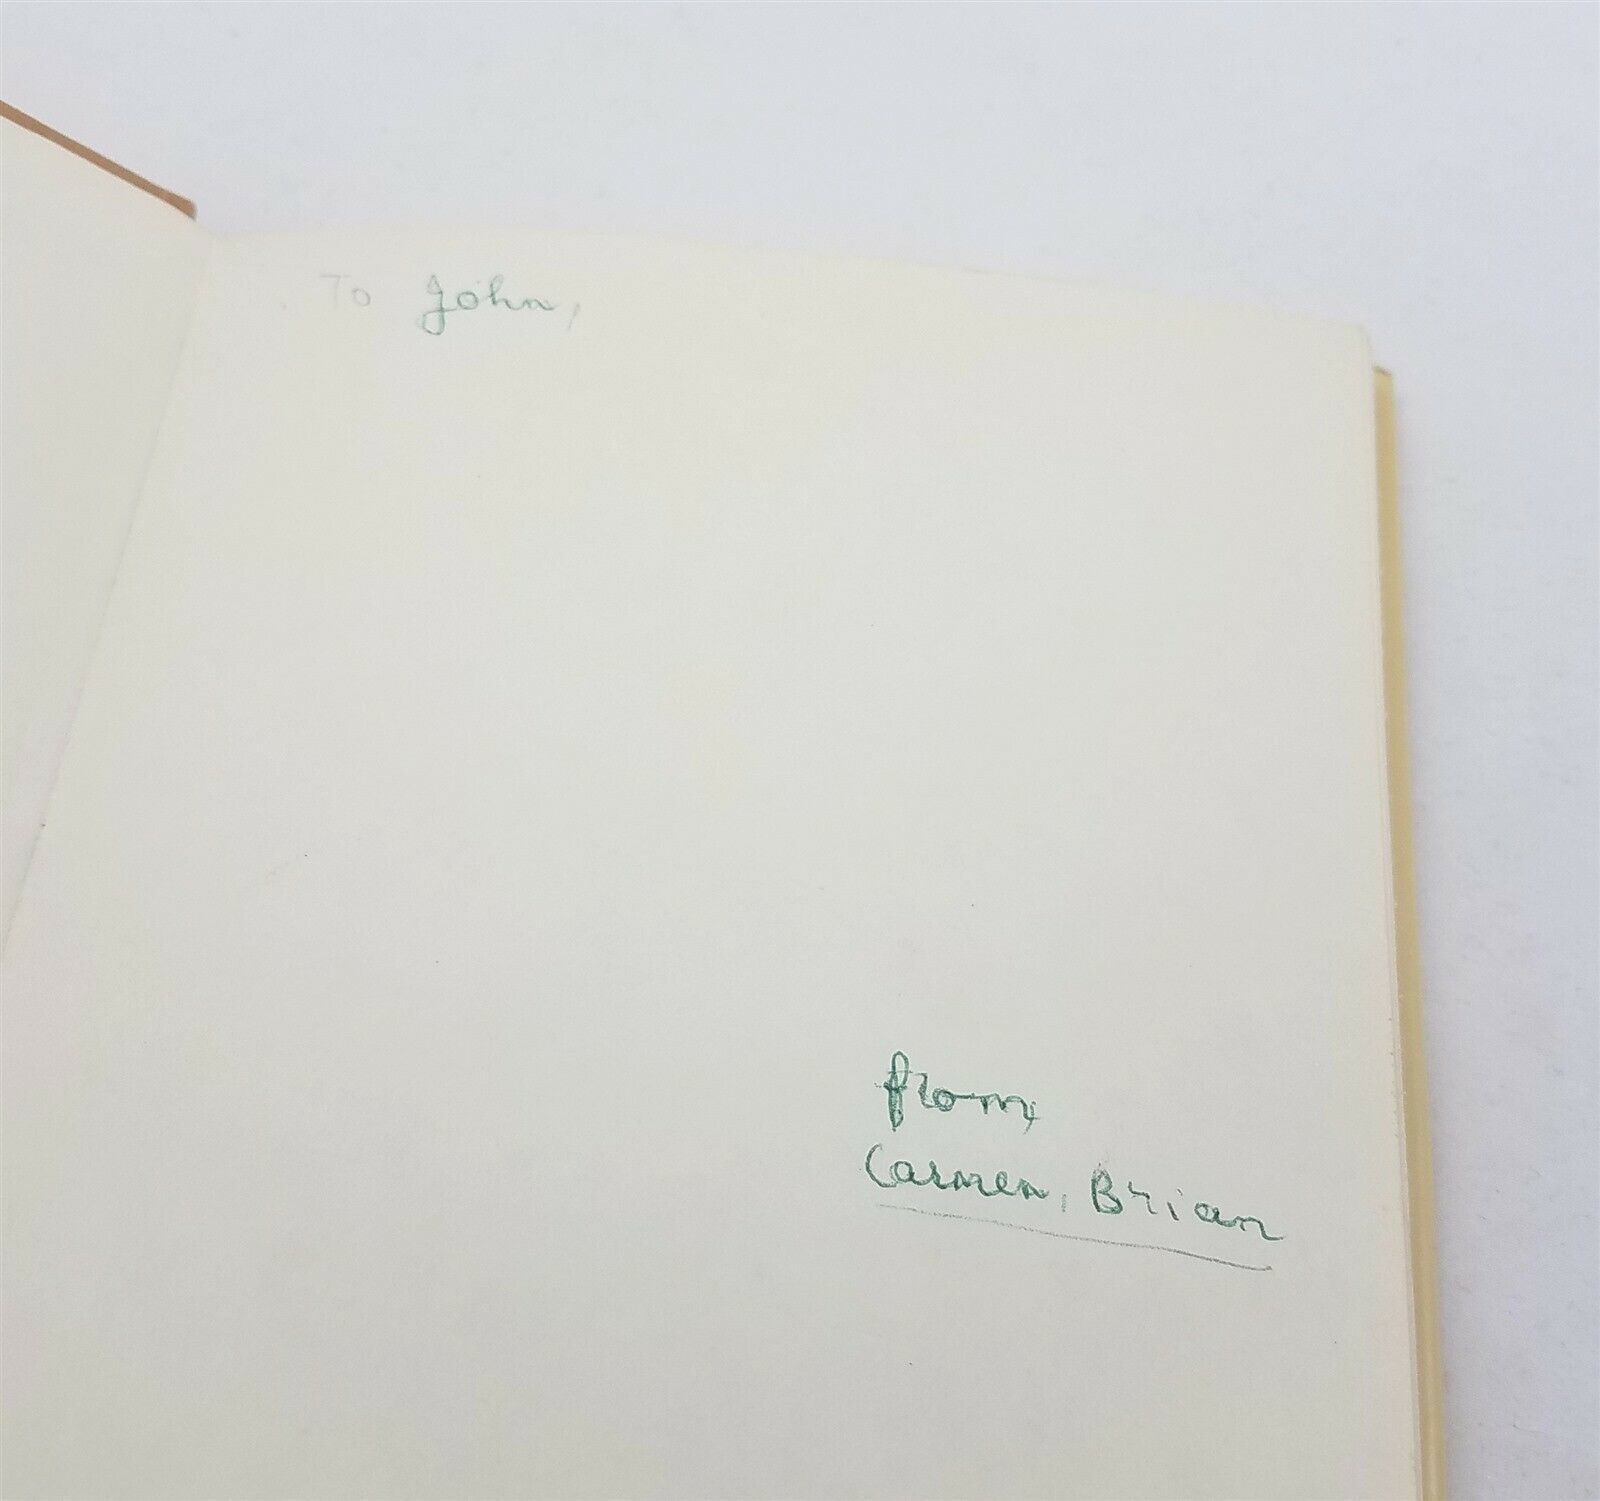 To John,
from,
Carmen, Brian